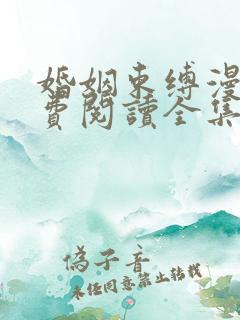 婚姻束缚漫
費閱讀全集
偽子音
未经同意禁止转载